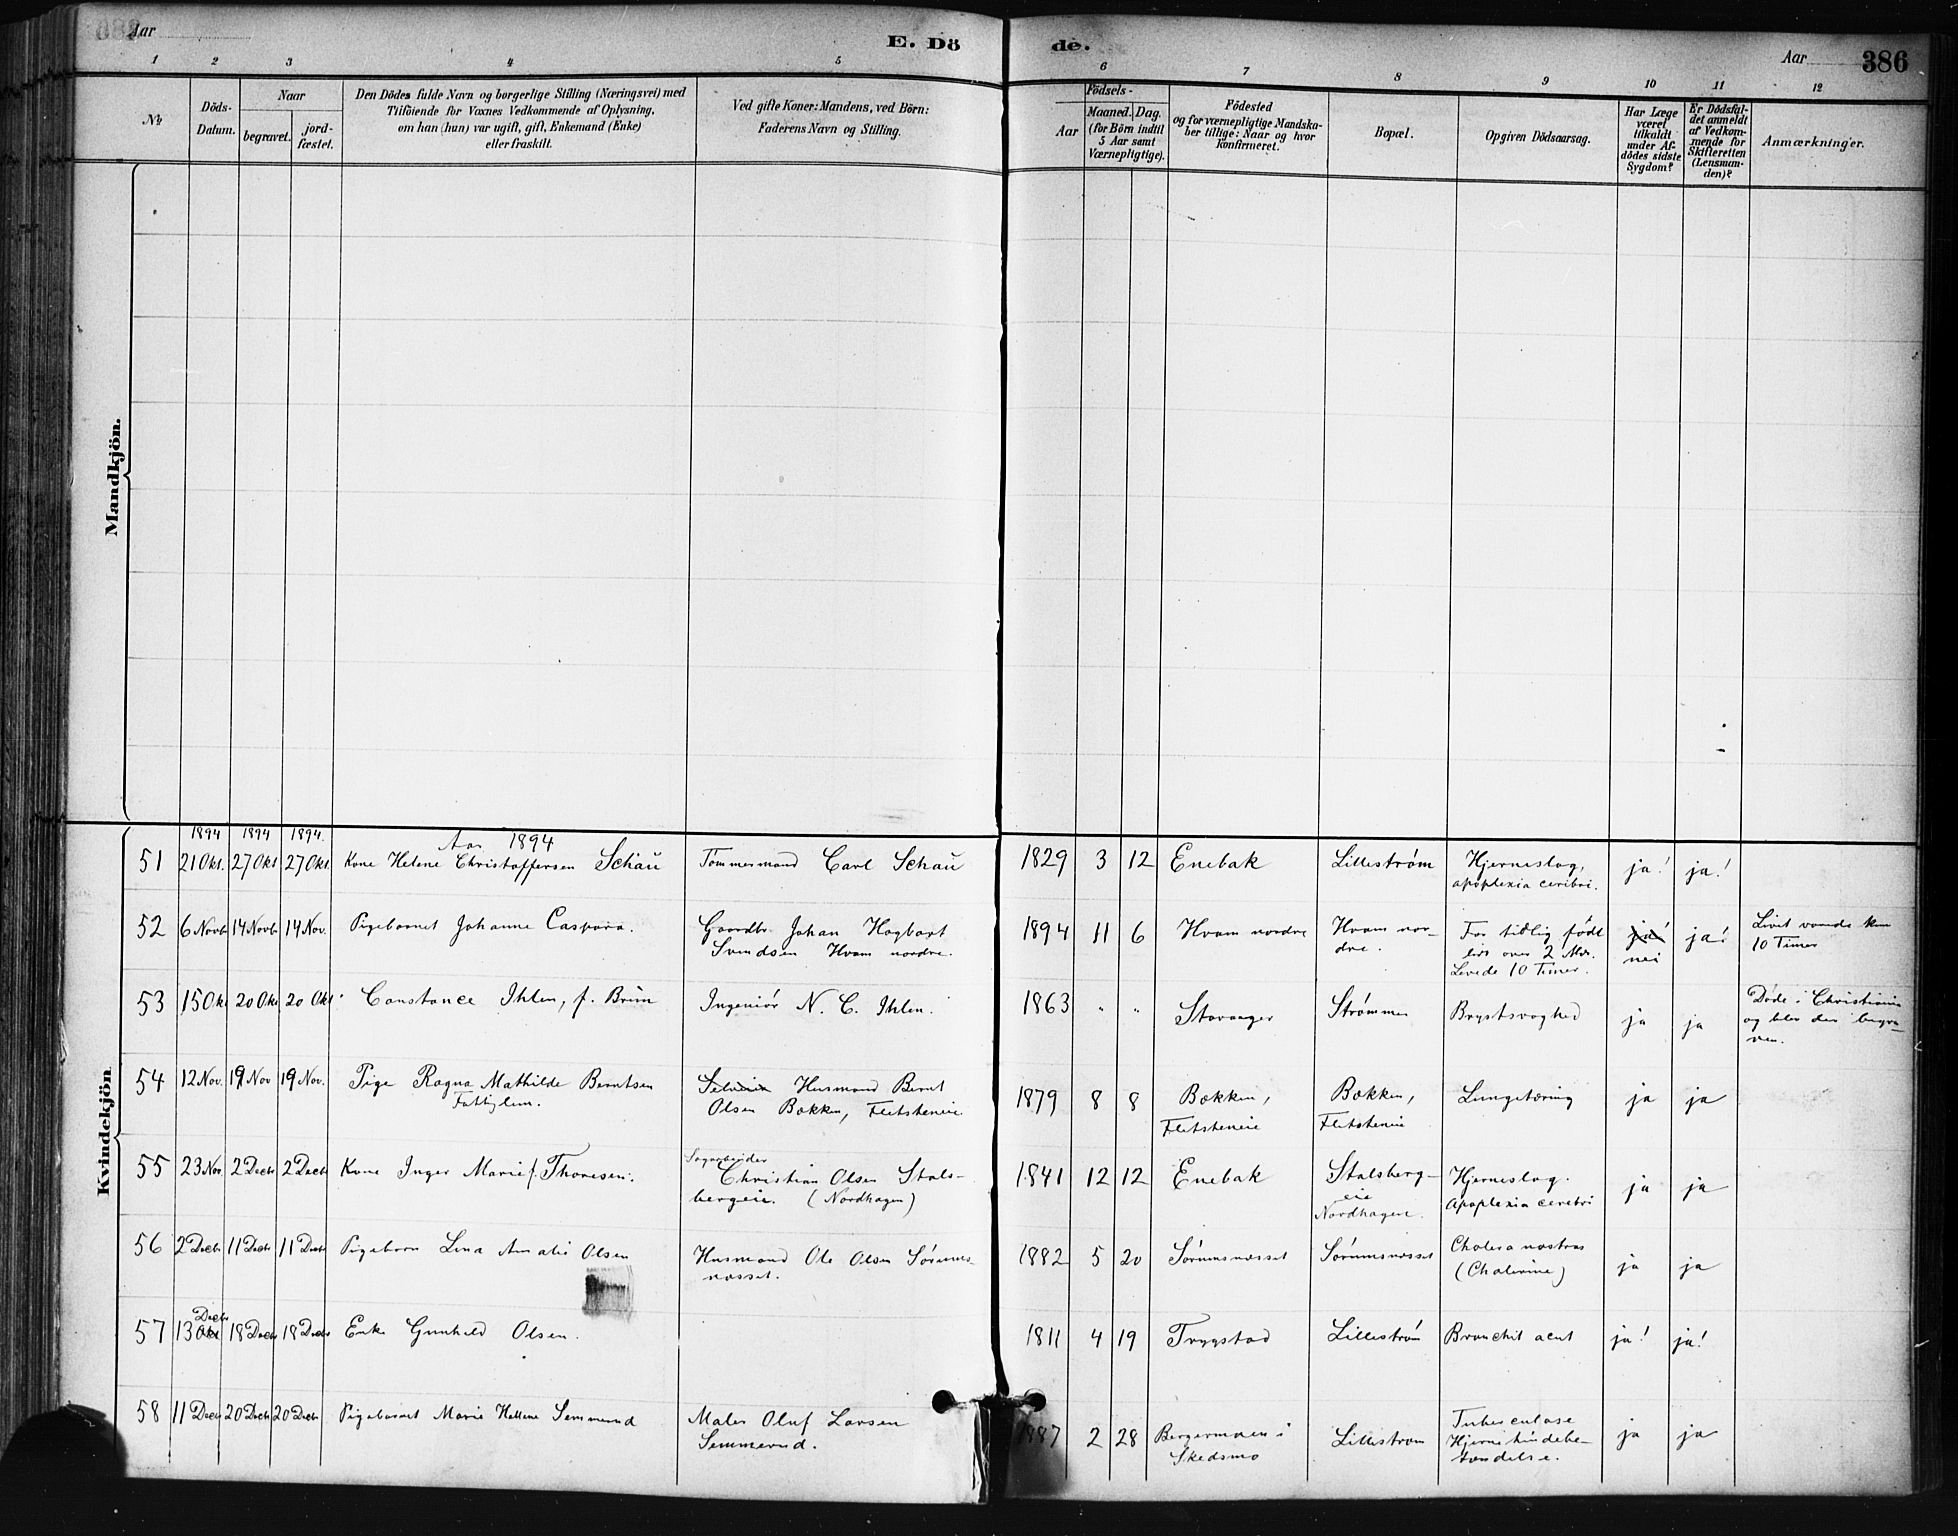 Aar
E. Dö
de.
Aar
386
1 2 3 4 5 6 7 8 9 10 11 12
No
Döds-
Datum.
Naar
begravet.
jord-
fæstet.
Den Dödes fulde Navn og borgerlige Stilling (Næringsvei) med
Tilföiende for Voxnes Vedkommende af Oplysning,
om han (hun) var ugift, gift, Enkemand (Enke)
eller fraskilt.
Ved gifte Koner: Mandens, ved Börn:
Faderens Navn og Stilling.
Födsels-
Aar
Maaned. Dag.
(for Börn indtil
5 Aar samt
Værnepligtige).
Födested
og for værnepligtige Mandska-
ber tillige: Naar og hvor
konfirmeret.
Bopæl.
Opgiven Dödsaarsag.
Har Læge
været
tilkaldt
under Af-
dödes sidste
Sygdom?
Er Dödsfal-
det anmeldt
af Vedkom-
mende for
Skifteretten
(Lensman-
den)?
Anmærkninger.
Mandkjön.
Kvindekjön.
1894 1894 1894.
Aar 1894
51 21 Okt. 27 Okt 27 Okt. Kone Helene Christoffersen Schau Tømmermand Carl Schau 1829 3 12 Enebak Lillestrøm Hjerneslag, ja! ja!
apoplexia cerebri.
52 6 Novb 14 Novb 14 Nov. Pigebarnet Johanne Caspara. Gaardbr. Johan Hagbart 1894 11 6 Hvam nordre Hvam nor- For tidlig født ja! ja! Livet varede kun
Svendsen Hvam nordre. dre. nei 10 Timer
Levede 10 Timer.
53 15 Okt 20 Okt 20 Okt. Constance Ihlen, f. Brun Ingeniør N. C. Ihlen. 1863 " " Stavanger Strømmen Brystsvaghed ja ja Døde i Christiania
og blev der begra-
ven.
54 12 Nov. 19 Nov 19 Nov. Pige Ragna Mathilde Berntsen Husmand Bernt 1879 8 8 Bakken, Bakken, Lungetæring ja ja
Fattiglem. Olsen Bakken, Fletsteneie Fletsteneie Fletsteneie
55 23 Nov. 2 Decb 2 Decb Kone Inger Marie f. Thoresen. Sagarbeider 1841 12 12 Enebak Stalsberg- Hjerneslag. ja ja
Christian Olsen Stals- eie Apoplexia cerebri
bergeie. (Nordhagen) Nordhagen.
56 2 Decb 11 Decb 11 Decb Pigebarn Lina Amalie Olsen Husmand Ole Olsen Sørums- 1882 5 20 Sørumsnæsset Sørumsnæsset Cholera nostras ja ja
næsset. (Cholerine)
Decb
57 13 Okt. 18 Decb 18 Decb Enke Gunhild Olsen. 1811 4 19 Trygstad Lillestrøm Bronchit acut ja! ja!
58 11 Decb 20 Decb 20 Decb Pigebarnet Marie Hellene Semmerud Maler Oluf Larsen 1887 2 28 Bergermoen i Lillestrøm Tuberculøse ja ja
Semmerud. Skedsmo Hjernehindebe-
tændelse.